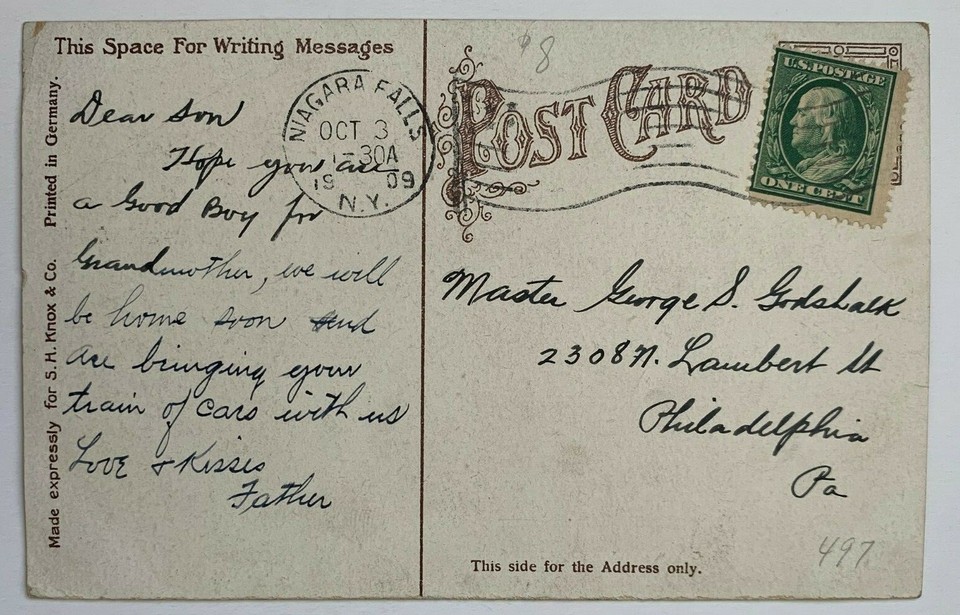 This Space For Writing Messages
Dear Son
Hope you are
a Good Boy for
Grandmother, we will
be home soon and
are bringing your
train of cars with us
Love & Kisses
Father
Made expressly for S.H. Knox & Co. Printed in Germany.
NIAGARA FALLS
OCT 3
1-30A
1909
N.Y.
$8
POST CARD
U.S. POSTAGE
ONE CENT
Master George S. Godshalk
2308 N. Lambert St
Philadelphia
Pa
497
This side for the Address only.